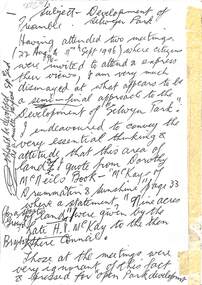 Subject - Development of
Preamble. Selwyn Park
Having attended two meetings,
27 Aug & 5th Sept 1996) where citizens
were invited to attend & express
their views, I am very much
dismayed at what appears to be
a semi-final approach to the
Development of "Selwyn Park".
I endeavoured to convey the
very essential thinking &
attitude, that this area of
land, I quote from Dorothy
McNeill's Book - "McKay's of
Drummartin & Sunshine" page 33
where a statement, "Nine acres
of land" were given by the
late H.V. McKay to the then
Braybrook Shire Council.
Those at the meetings were
very ignorant of this fact
& pressed for open Park development